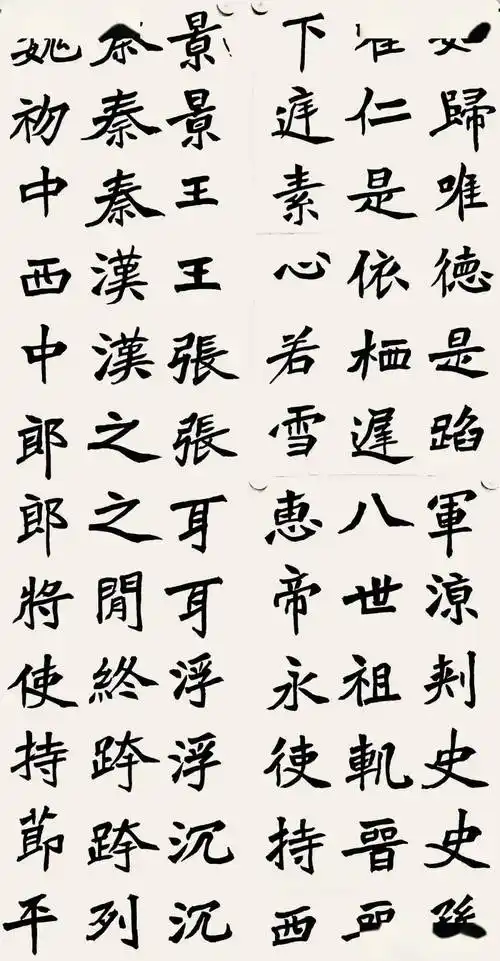 歸唯德是蹈軍涼刺史史
仁是依栖遲八世祖軌晉
下庭素心若雪惠帝永使持西
景景王王張張耳耳浮浮沉沉
秦秦漢漢之之閒終跨跨列
初中西中郎郎將使持節平